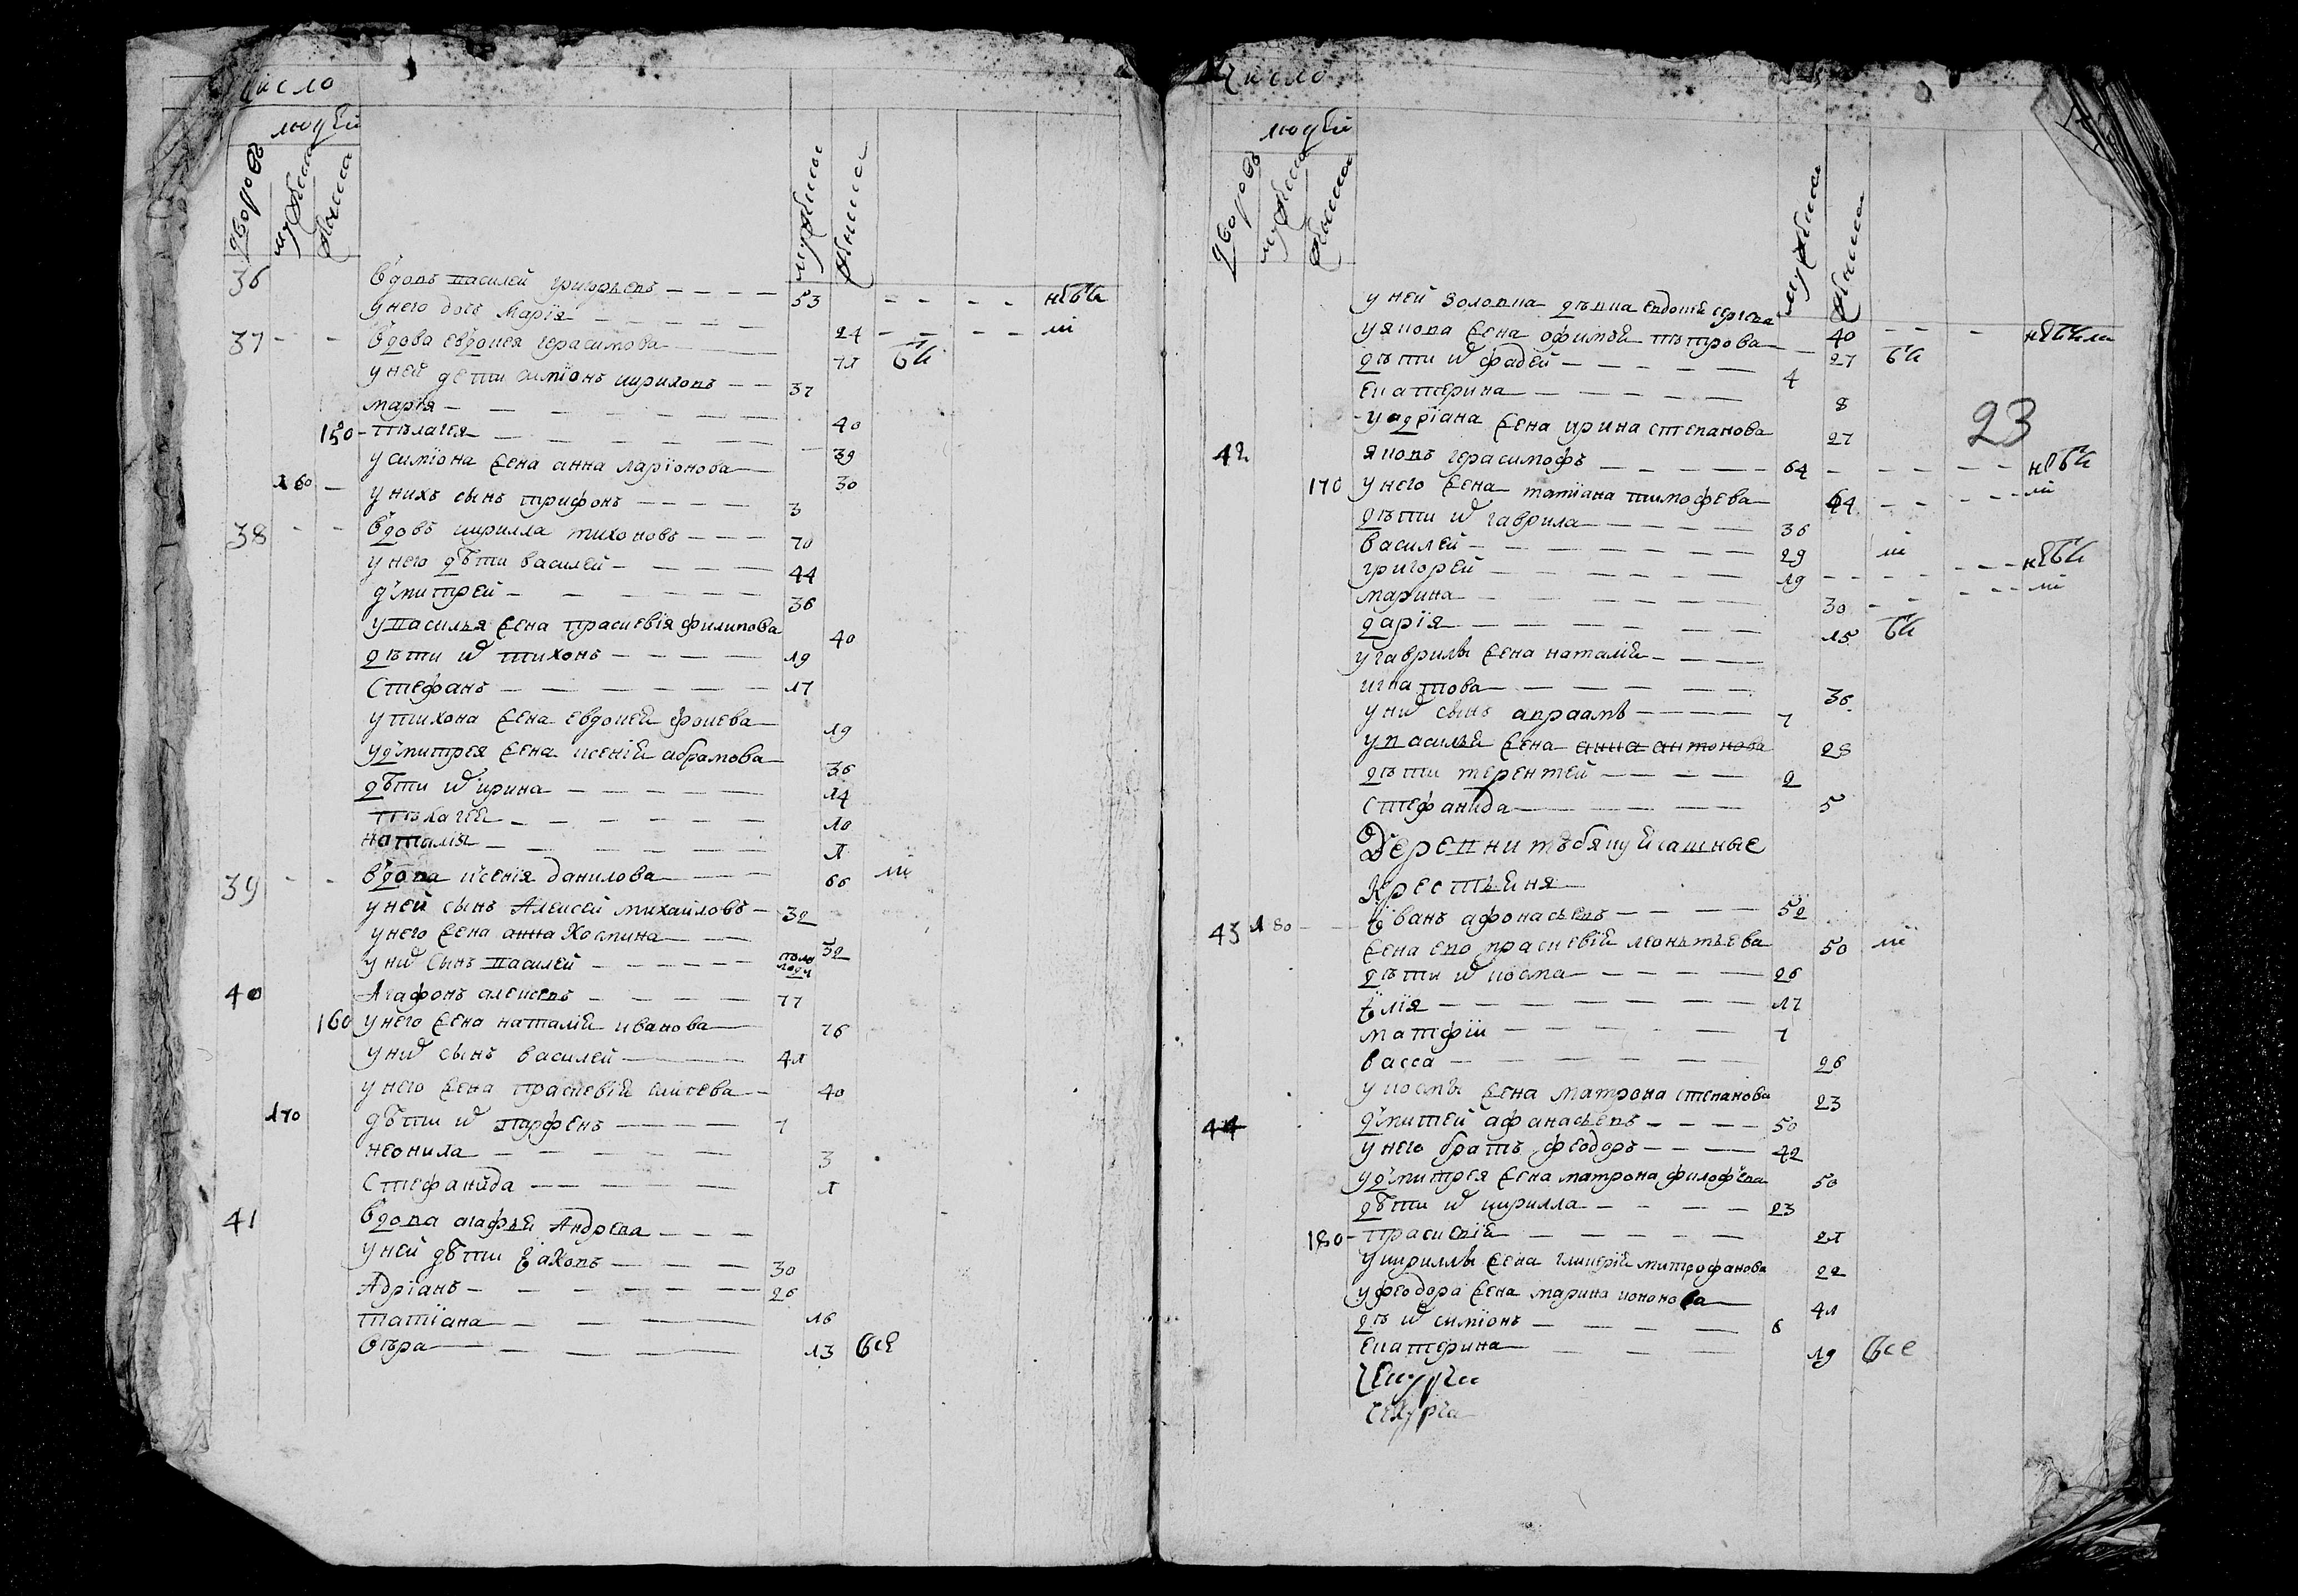 Число
людей
дворовъ
мужеска
женска
мужеска
женска
36 вдовъ василей григорьевъ 53 небы
у него дочь марїя 24 ли
37 вдова евдокея герасимова 71 бы
у ней дети симїонъ кириловъ 37
марїя 40
150 пѣлагея 39
у симїона жена анна ларїонова 30
160 у нихъ сынъ трифонъ 3
38 вдовъ кирилла тихоновъ 70
у него дѣти василей 44
дмитрей 36
у василья жена праскевїя филипова 40
дѣти их тихонъ 19
стефанъ 17
у тихона жена евдокея фокева 19
у дмитрея жена ксенїя абрамова 36
дѣти их ирина 14
пѣлагея 10
наталїя 1
39 вдова ксенїя данилова 66 ли
у ней сынъ Алексей михайловъ 32
у него жена анна Космина 32
у них сынъ василей полу году
40 Агафонъ алексевъ 77
160 у него жена наталїя иванова 76
у них сынъ василей 41
у него жена праскевїя елисева 40
170 дѣти их парфенъ 7
неонила 3
стефанида 1
41 вдова агафья Андрева
у ней дѣти Їаковъ 30
Адрїанъ 26
татїана 16
вѣра 13 все
Число
людей
дворовъ
мужеска
женска
мужеска
женска
у ней золовка дѣвка евдокея сергева 40
у якова жена офимья пѣтрова 27 бы
дѣти их фадей 4
екатерина 8
23
у адрїана жена ирина степанова 27
42 яковъ герасимофъ 64 небы
170 у него жена татїана тимофева 64 ли
дѣти их гаврила 36
василей 29 ли
григорей 19 небы
марина 30 ли
дарїя 15 бы
у гаврилы жена наталїя
игнатова 36
у них сынъ авраамъ 7
у василья жена анна антонова 28
дѣти терентей 2
стефанида 5
Деревни тѣбякуй сашные
Крестьяня
43 180 Їванъ афонасьевъ 52
жена ево праскевїя леонътьева 50 ли
дѣти их косма 26
Їлїя 17
матфїй 7
васса 26
у космы жена матрона степанова 23
44 дмитей афанасьевъ 50
у него братъ феодоръ 42
у дмитрея жена матрона филофева 50
дѣти их кирилла 23
180 праскевїя 21
у кириллы жена гликерїя митрофанова 22
у феодора жена марина кононова 41
дѣ их симїонъ 6
екатерина 19 все